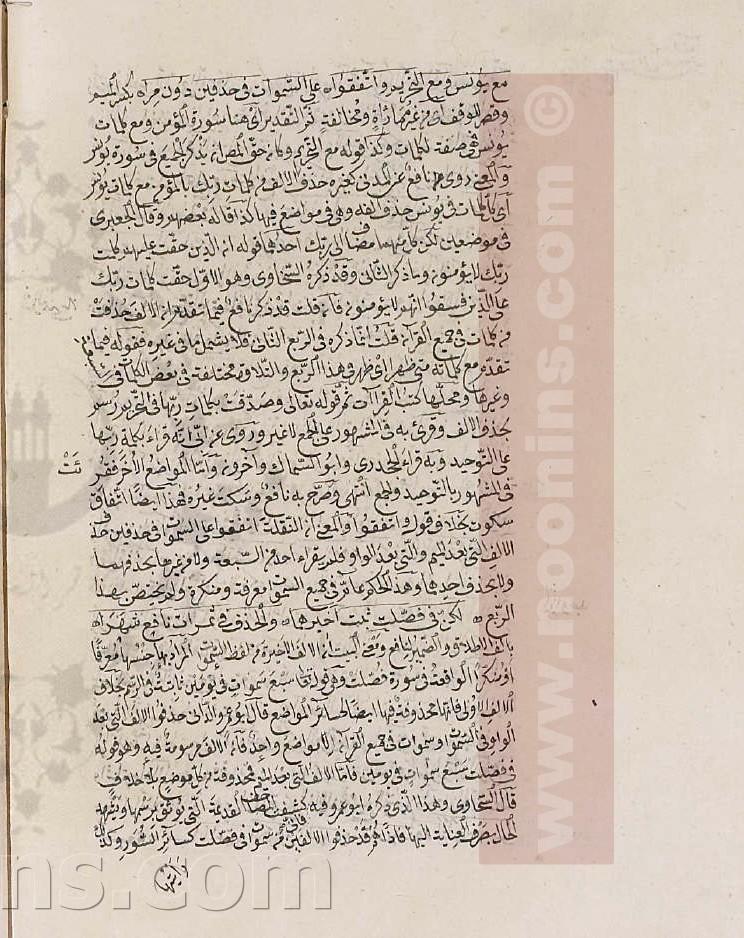 مع يونس ومع التحريم واتفقوا على السموات في حذفين دون مراه بكسر الميم
وقصر للوقف اي من غير مماراة ومخالفة ثم التقدير اي هنا سورة المؤمن ومع كلمات
يونس فهي صفة لكلمات وكذا قوله مع التحريم وكان حق المص ان يذكر الجميع في سورة يونس
والمعنى روى نافع عن المدني كغيره حذف الالف من كلمات ربك بالمؤمن مع كلمات يونس
اي كلمات في يونس حذف الفه وهي في مواضع فيها كذا قاله بعضهم وقال الجعبري
في موضعين لكن كل منهما مضاف الى ربك احدهما قوله ان الذين حقت عليهم كلمت
ربك لا يؤمنون وما ذكر الثاني وقد ذكره السخاوي وهو الاول حقت كلمات ربك
على الذين فسقوا انهم لا يؤمنون فان قلت قد ذكر نافع فيما تقدم ان الالف حذفت
من كلمات في جميع القرآن قلت انما ذكره في الربع الثاني فلا يشمل ما في غيره فقوله فيما
تقدم مع كلماته متى ظهر اي ظهر في هذا الربع والتلاوة مختلفة في بعض الكلمات
وغيرها ومحلها كتب القراآت ثم قوله تعالى وصدقت بكلمات ربها في التحريم رسم
بحذف الالف وقرئ به في المشهور على الجمع لا غير وروى عن ابي انه قراء بكلمة ربها
على التوحيد وبه قراء الجحدري وابو السماك وآخرون واما المواضع الأخر فقر
ئت
في المشهور بالتوحيد والجمع انتهى وصرح به نافع وسكت غيره فهذا ايضا اتفاق
سكوت بخلاف قول واتفقوا والمعنى ان النقلة اتفقوا على السموات في حذفين حذف
الالف التي بعد الميم والتي بعد الواو فلم يقراء احد من السبعة ولا من غيرها بحذفهما
ولا بحذف احدهما وهذا الحكم عام في جميع السموات معرفة ومنكرة ولم يختص بهذا
الربع لكن في فصلت ثبت اخيرهما والحذف في ثمرات نافع شهرا
بالف الاطلاق والضمير لنافع ومعنى البيت ان الالف الاخيرة من لفظ السموات المراد بها جنسها معرفا
او منكرا الواقعة في سورة فصلت وهي قوله تعالى سبع سموات في يومين ثابتة في الرسم بخلاف
الالف الاولى فانها محذوفة فيها ايضا كسائر المواضع قال ابو عمرو الداني حذفوا الالف التي بعد
الواو في السموات وسموات في جميع القرآن الا مواضع واحد فان الالف مرسومة فيه وهو قوله
في فصلت سبع سموات في يومين فاما الالف التي بعد الميم فمحذوفة من كل موضع بلا خلاف
قال السخاوي وهذا الذي ذكره ابو عمرو فيه كشفت المصاحف القديمة التي يوثق برسمها ويشهد
الحال بصرف العناية اليها فاذا هم قد حذفوا الالفين من سموات في فصلت كسائر السور وكذلك
رايتها
www.noonins.com
ns.com